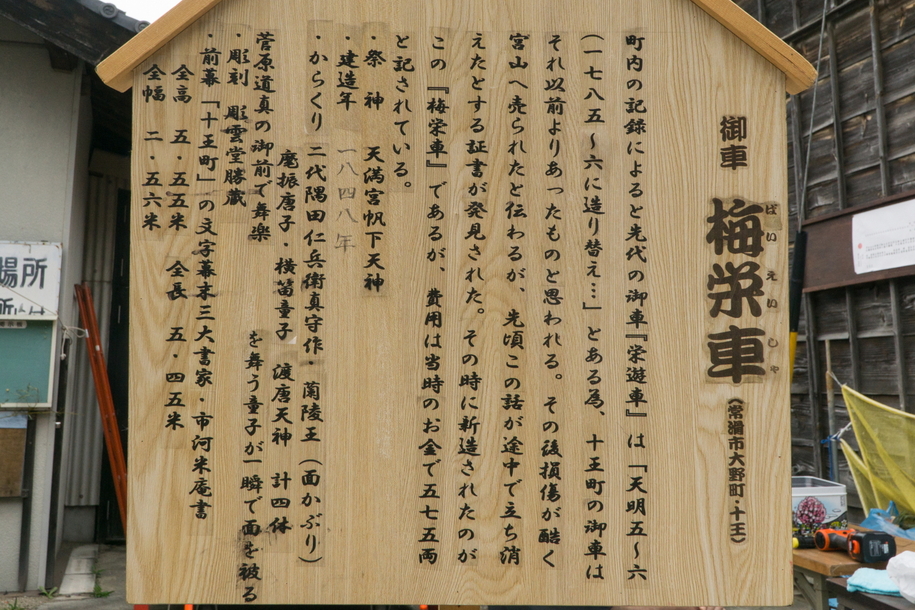 御車 梅栄車 (常滑市大野町・十王)
ばいえいしゃ
町内の記録によると先代の御車『栄遊車』は「天明五〜六
(一七八五〜六に造り替え…」とある為、十王町の御車は
それ以前よりあったものと思われる。その後損傷が酷く
宮山へ売られたと伝わるが、先頃この話が途中で立ち消
えたとする証書が発見された。その時に新造されたのが
この『梅栄車』であるが、費用は当時のお金で五七五両
と記されている。
・祭神 天満宮帆下天神
・建造年 一八四八年
・からくり 二代隅田仁兵衛真守作・蘭陵王(面かぶり)
麾振唐子・横笛童子 渡唐天神 計四体
菅原道真の御前で舞楽を舞う童子が一瞬で面を被る
・彫刻 彫雲堂勝蔵
・前幕「十王町」の文字幕末三大書家・市河米庵書
全高 五・五五米 全長 五・四五米
全幅 二・五六米
場所